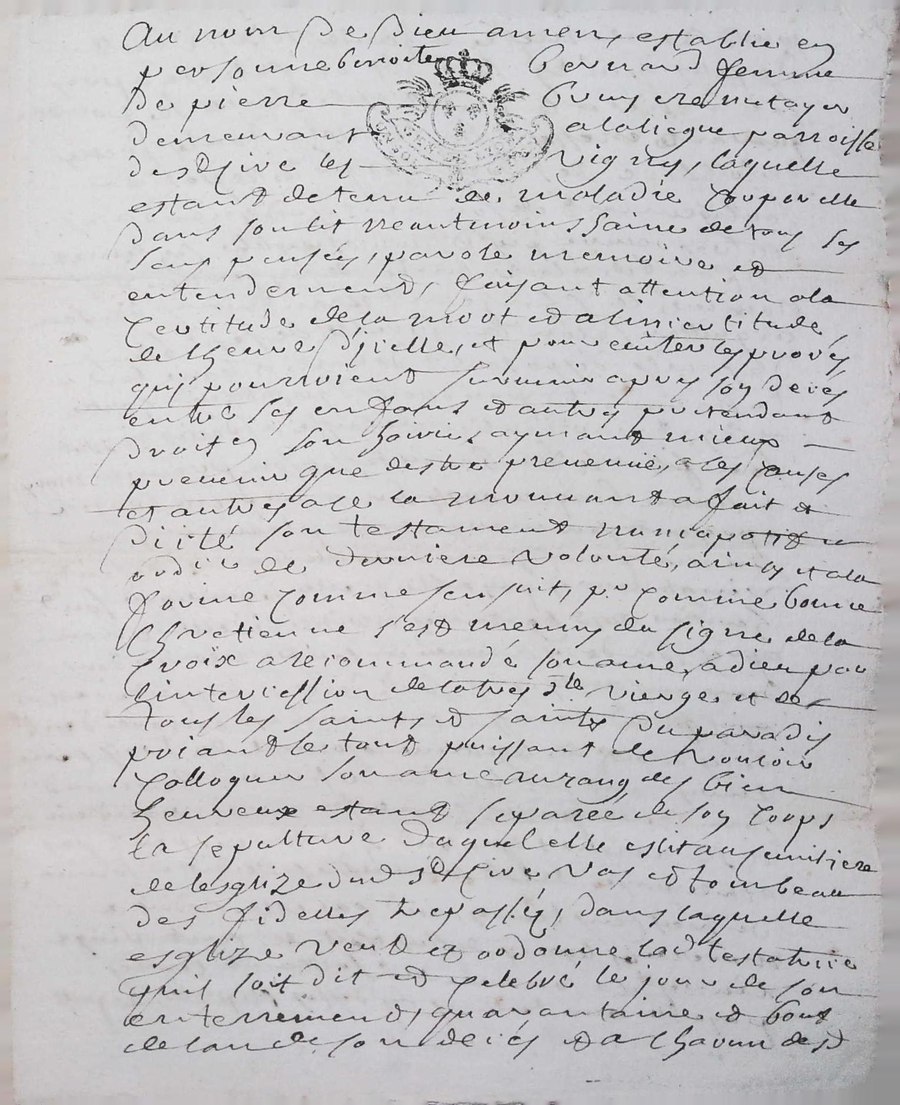 Au nom de Dieu amen, establie en
personne benoite Bernard femme
de pierre Bruyere metayer
demeurant a parroisse
de St Cire les Vignes, laquelle
estant detenu de maladie corporelle
dans son lit neantmoins saine de tous ses
sens pensées, parole memoire et
entendement, faisant attention a la
certitude de la mort et a lincertitude
de lheure dicelle, et pour eviter les procès
quy pourroient survenir apres son deces
entre ses enfans et autres pretendant
droit en son hoirie, aymant mieux
prevenir que destre prevenue, a les causes
et autres a ce la mouvant a fait et
dicté son testament nuncupatif
ordre de derniere volonté, ainsy et a la
forme comme sensuit, pr comme bonne
Chretienne sest munis du signe de la
Croix a recommandé son ame, a dieu par
lintercession de la tres Ste vierge et de
tous les saints et saintes du paradis
priant le tout puissant de vouloir
colloquer son ame au rang des bien
heureux estant separée de son corps
la sepulture duquel elle eslit au simitiere
de lesglize dud St Cire vas et tombeau
des fidelles trepassés, dans laquelle
esglize veut et ordonne lad testatrice
quil soit dit et celebré le jour de son
enterrement, quarantaine et bout
de lan de son deces et a chacun desd